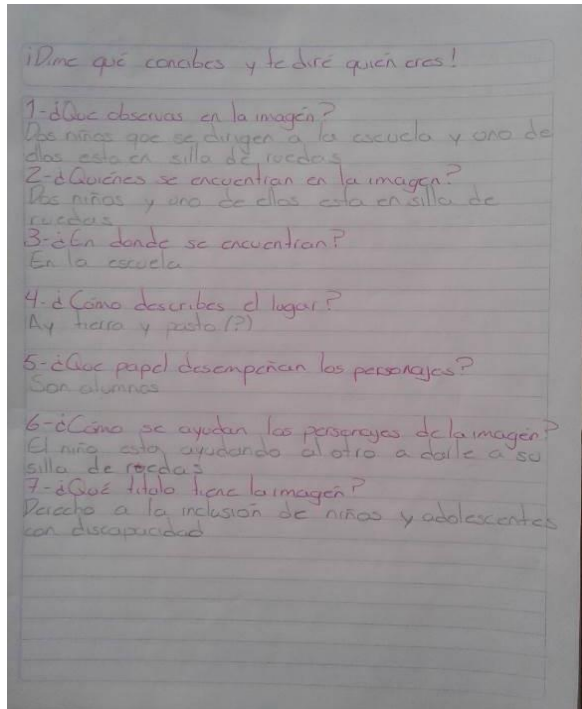 ¡Dime qué concibes y te diré quién eres!
1-¿Que observas en la imagén?
Dos niños que se dirigen a la escuela y uno de
ellos esta en silla de ruedas
2-¿Quiénes se encuentran en la imagen?
Dos niños y uno de ellos esta en silla de
ruedas
3-¿En donde se encuentran?
En la escuela
4-¿Cómo describes el lugar?
Ay tierra y pasto (?)
5-¿Que papel desempeñan los personajes?
Son alumnos
6-¿Cómo se ayudan los personajes de la imagén?
El niño esta ayudando al otro a darle a su
silla de ruedas
7-¿Qué titulo tiene la imagén?
Derecho a la inclusión de niños y adolescentes
con discapacidad